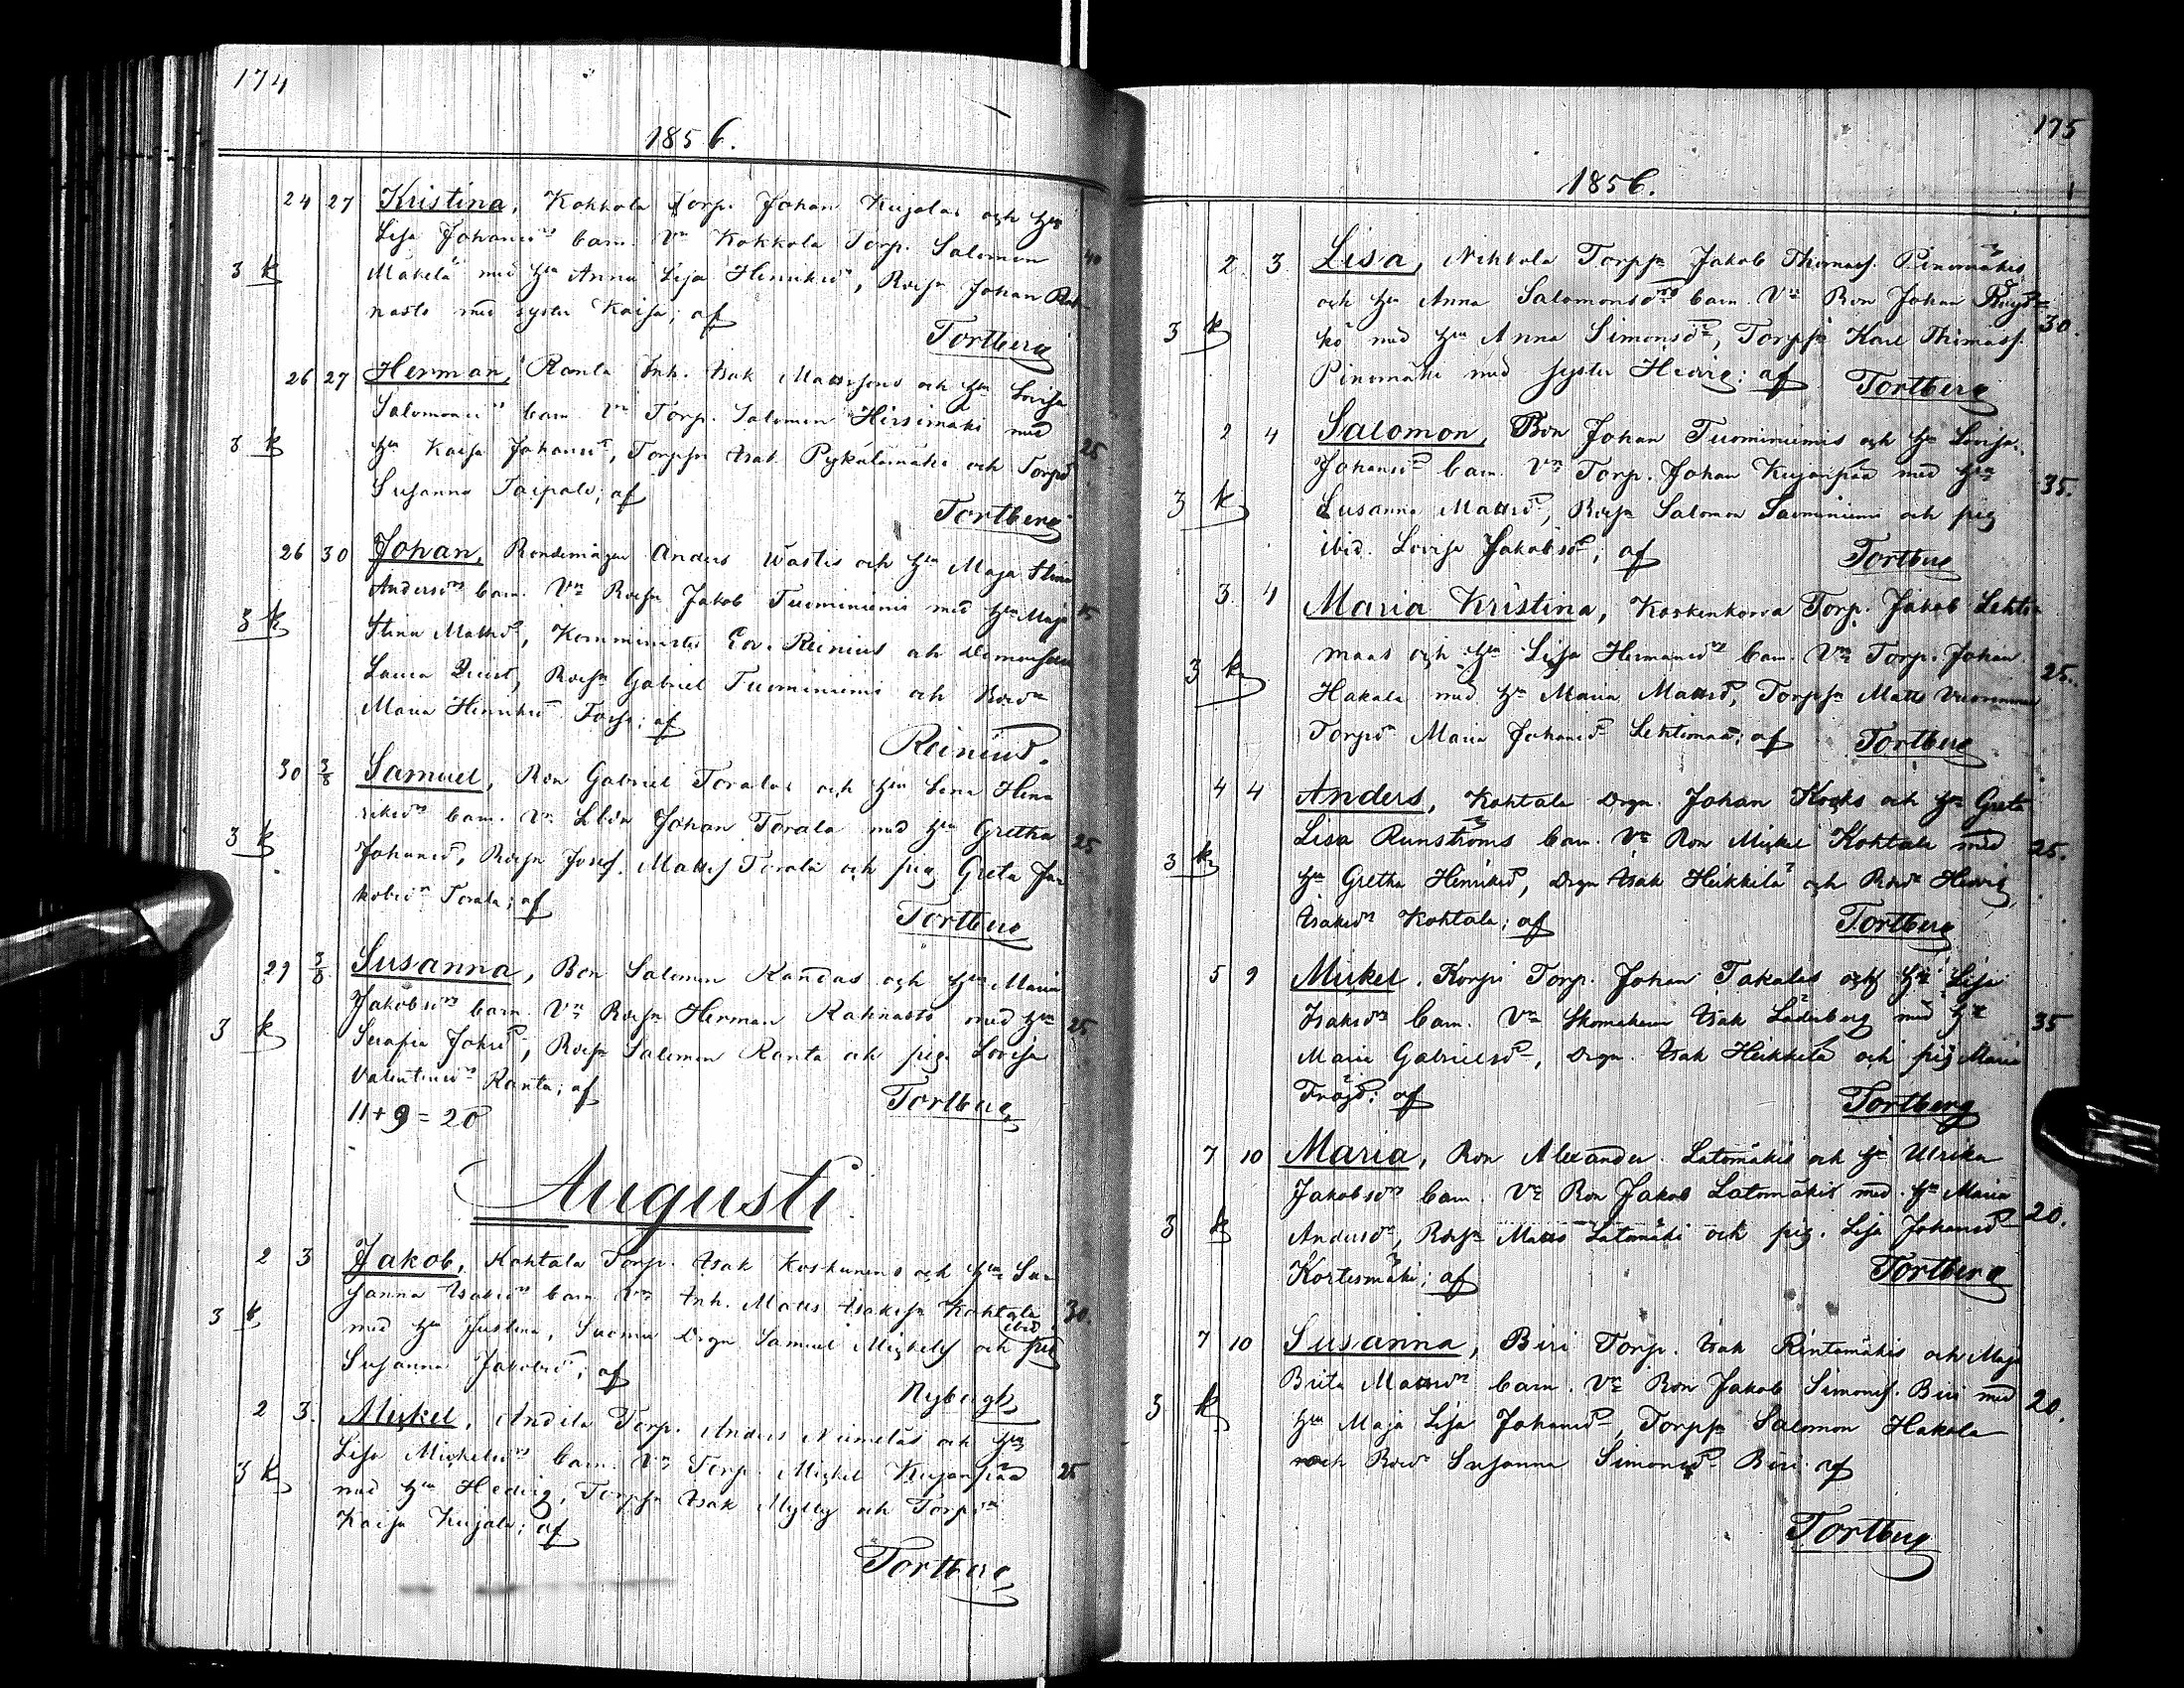 174
1856.
24 27 Kristina, Kokkola Torp. Johan Kujalas och Hu
Lisa Johansdrs barn. Vn Kokkola Torp. Salomon 40
3 k Mäkelä med Hu Anna Lisa Henriksdr, Rdsn Johan
nasto med syster Kaisa; af
Tortberg
26 27 Herman, Ranta Inh. Isak Mattssons och Hu Lovisa
Salomonsdrs barn. Vn Torp. Salomon Hirsimäki med
3 k Hu Kaisa Johansdr, Torpsn Isak Pykälämäki och Torpdr 25
Susanna Taipale; af
Tortberg
26 30 Johan, Anders Wästis och Hu Maja Stina
Andersdrs barn. Vn Rdsn Jakob Tuominiemi med Hu Maja 15
3 k Stina Mattsdr, Komminister Reinius och
Laura Rdsn Gabriel Tuominiemi och Bondr
Maria Henriksdr af
Reinius.
30 3/8 Samuel, Bon Gabriel Toralas och Hu Lena Hen-
riksdrs barn. Vn Johan Torala med Hu Gretha 25
3 k Johansdr, Rdsn Josef Mattsf Torala och pig. Greta Ja-
kobsdr Torala; af
Tortberg
29 3/8 Susanna, Bon Salomon Randas och Hu Maria
Jakobsdrs barn. Vn Rdsn Herman Kahnasto med Hu 25
3 k Serafia Johsdr, Rdsn Salomon Ranta och pig. Lovisa
Valentinsdr Ranta; af
11+9=20
Tortberg
Augusti
2 3 Jakob, Kohtala Torp. Isak Koskinens och Hu Su-
sanna Isaksdrs barn Vn Inh. Matts Isaksn Kohtala 30.
3 k med Hu Justina, Drgn Samuel Michelsf och pig ibid.
Susanna Jakobsdr; af
Nybergh
2 3. Michel, Andila Torp. Anders Niemeläs och Hu
Lisa Michelsdrs barn. Vn Torp. Michel Kujanpää 25
3 k med Hu Hedvig, Torpsn Isak Mylly och Torpdr
Kaisa Kujala; af
Tortberg
175
1856.
2. 3 Lisa, Nikkola Torpsn Jakob Thomasf. Pinomäkis
och Hu Anna Salomonsdrs barn. Vn Bon Johan 30.
3 k kö med Hu Anna Simonsdr, Torpsn Karl Thomasf.
Pinomäki med syster Hedvig; af Tortberg
2 4 Salomon, Bon Johan Tuominiemis och Hu Lovisa
Johansdrs barn. Vn Torp. Johan Kujanpää med Hu 35.
3 k Susanna Mattsdr, Rdsn Salomon Tuominiemi och pig
ibid. Lovisa Jakobsdr; af Tortberg
3. 4 Maria Kristina, Koskenkorva Torp. Jakob Lehti-
maas och Hu Lisa Hermansdrs barn. Vn Torp. Johan 25.
3 k Hakala med Hu Maria Mattsdr, Torpsn Matts
Torpdr Maria Johansdr Lehtimaa; af Tortberg
4 4 Anders, Kohtala Drgn. Johan Kocks och Hu Greta
Lisa Runströms barn. Vn Bon Michel Kohtala med 25.
3 k Hu Gretha Henriksdr, Drgn Isak Heikkilä och Bdr Hedvig
Isaksdr Kohtala; af Tortberg
5 9 Mickel. Korpi Torp. Johan Takalas och Hu Lisa
Isaksdrs barn. Vn Skomakarn Isak Läderberg med Hu 35
Maria Gabrielsdr, Drgn. Isak Heikkilä och pig Maria
Fröjd; af Tortberg
7 10 Maria, Bon Alexander Latomäkis och Hu Ulrika
Jakobsdrs barn. Vn Bon Jakob Latomäkis med Hu Maria 20.
3 k Andersdr, Rdsn Matts Latomäki och pig. Lisa Johansdr
Kortesmäki; af Tortberg
7 10 Susanna, Biri Torp. Isak Rintamäkis och Maja
Brita Mattsdrs barn. Vn Bon Jakob Simonsf. Biri med 20.
3 k Hu Maja Lisa Johansdr, Torpsn Salomon Hakala
och Bdr Susanna Simonsdr Biri af
Tortberg